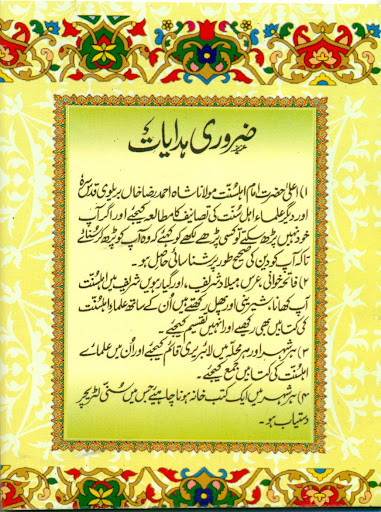 ضروری ہدایات
۱) اعلیٰ حضرت امام اہلسنّت مولانا شاہ احمد رضا خاں بریلوی قدس سرہٗ
اور دیگر علماء اہل سنّت کی تصانیف کا مطالعہ کیجئے اور اگر آپ
خود نہیں پڑھ سکتے تو کسی پڑھے لکھے کو کہئے کہ وہ آپ کو پڑھ کر سنائے
تاکہ آپ کو دین کی صحیح طور پر شناسائی حاصل ہو۔
۲) فاتحہ خوانی، عرس، میلاد شریف، اور گیارہویں شریف میں اہلسنّت
آپ کھانا، شیرینی اور پھل رکھتے ہیں اُن کے ساتھ علماء اہلسنّت
کی کتابیں بھی رکھیے اور انہیں تقسیم کیجئے۔
۳) ہر شہر اور ہر محلہ میں لائبریری قائم کیجئے اور اُن میں علمائے
اہلسنّت کی کتابیں جمع کیجئے۔
۴) ہر شہر میں ایک کتب خانہ ہونا چاہیے جس میں سنّی لٹریچر
دستیاب ہو۔